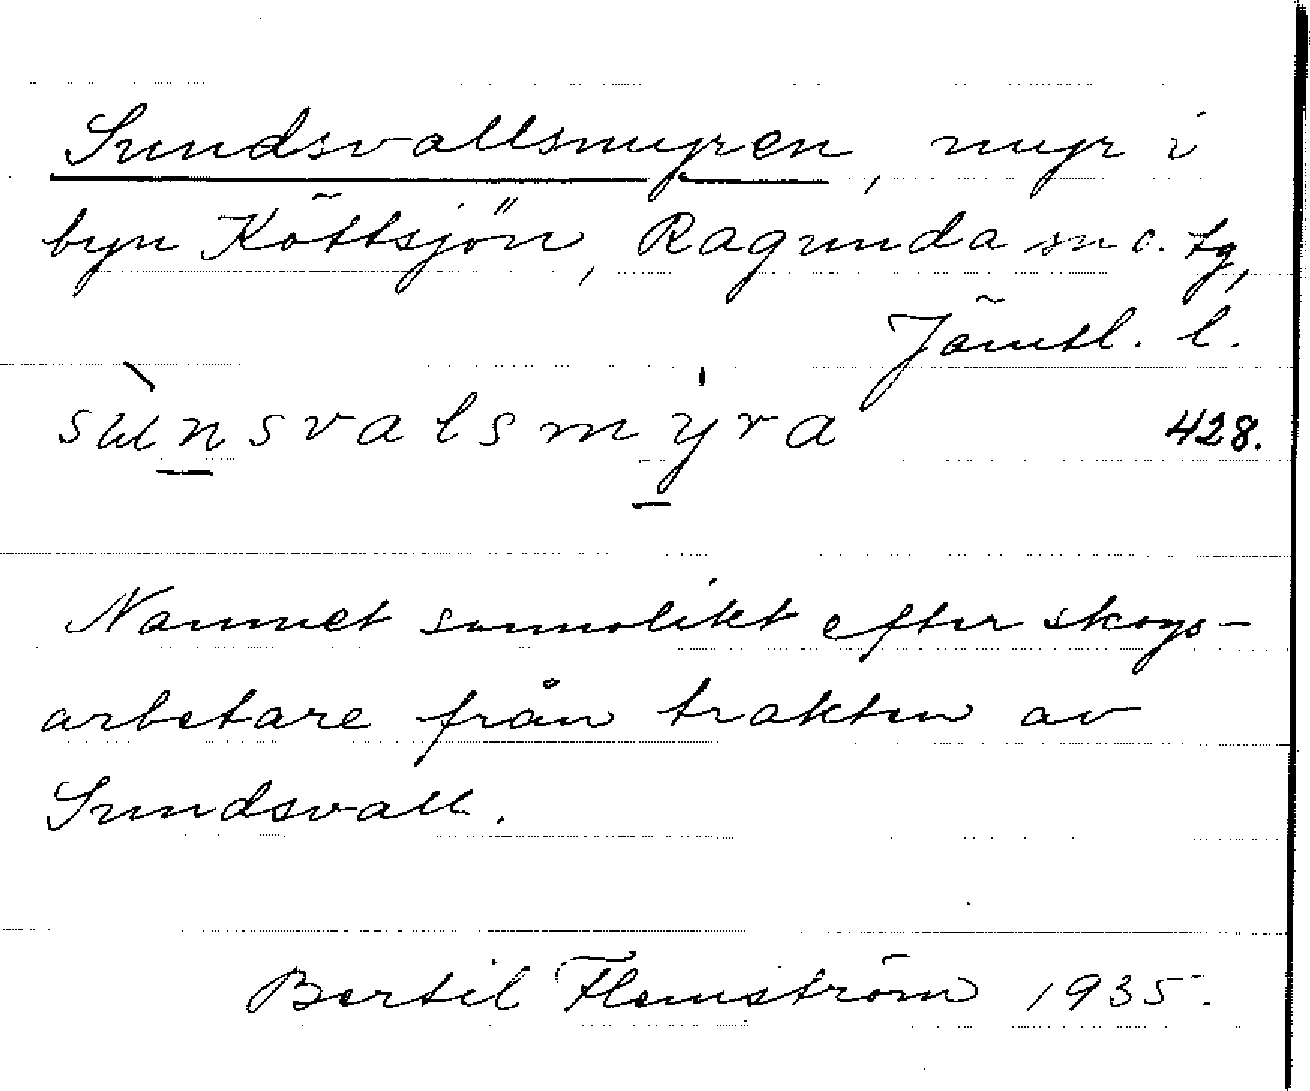 Sundsvallsmyren, myr i
byn Köttsjön, Ragunda sn o. tg,
Jämtl. l.
sùnsvalsmýra 428.
Namnet sannolikt efter skogs-
arbetare från trakten av
Sundsvall.
Bertil Flemström 1935.